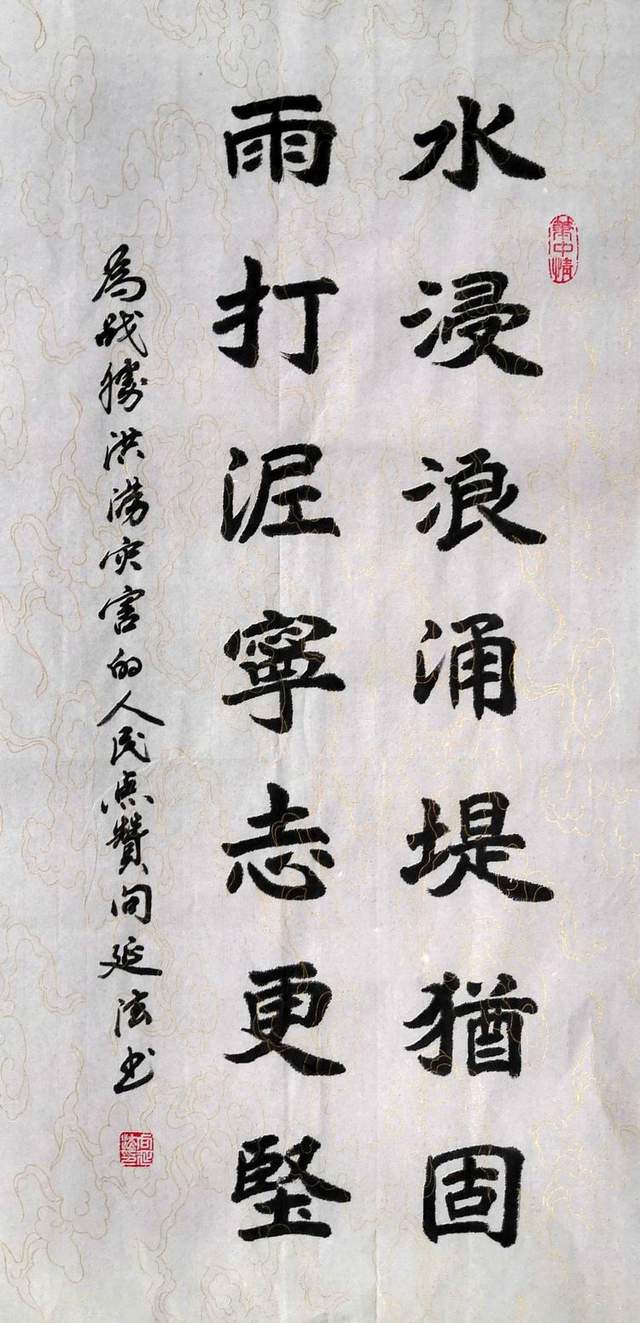 水浸浪涌堤猶固
雨打泥寧志更堅
為战勝洪澇灾害的人民点贊向延法书